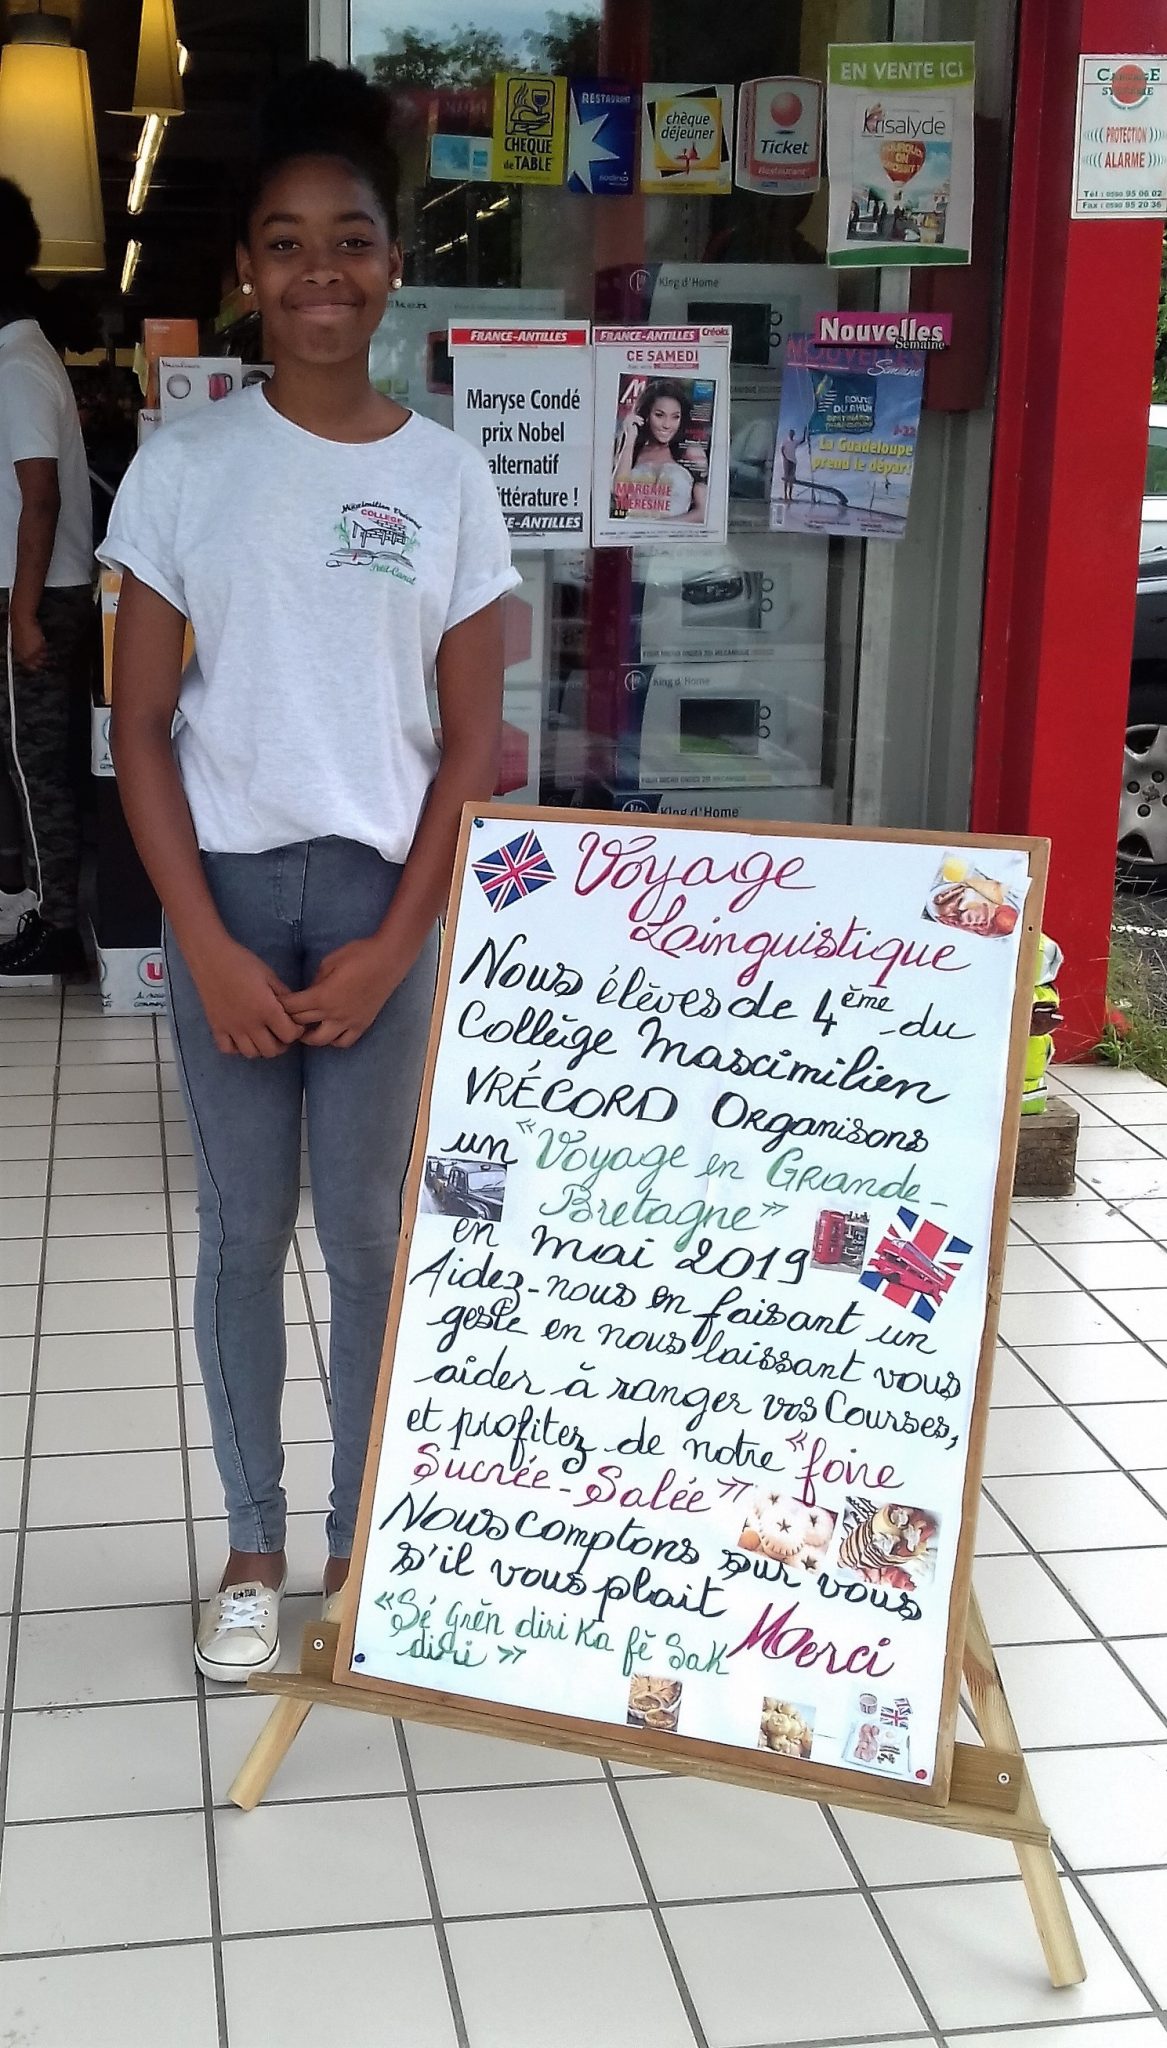 CHEQUE
de TABLE
RESTAURANT
sodexo
chèque
déjeuner
Ticket
Restaurant
EN VENTE ICI
Krisalyde
CARAIBE
SYSTEME
PROTECTION
ALARME
Tél : 0590 95 06 02
Fax : 0590 95 20 36
King d'Home
FRANCE-ANTILLES
Maryse Condé
prix Nobel
alternatif
ttérature !
CE-ANTILLES
FRANCE-ANTILLES
CE SAMEDI
MORGANE
THERESINE
Nouvelles
Semaine
Semaine
ROUTE
DU RHUM
J-22
La Guadeloupe
prend le départ
COLLEGE
Petit-Canal
King d'Home
King d'Home
U
Voyage
Lainguistique
Nous élèves de 4ème du
Collège Mascimilien
VRÉCORD Organisons
un "Voyage en Grande-
Bretagne"
en mai 2019
Aidez-nous en faisant un
geste en nous laissant vous
aider à ranger vos Courses,
et profitez de notre "foire
Sucrée-Salée"
Nous comptons sur vous
s'il vous plait Merci
"Sé Grèn diri Ka fè Sak
diri"